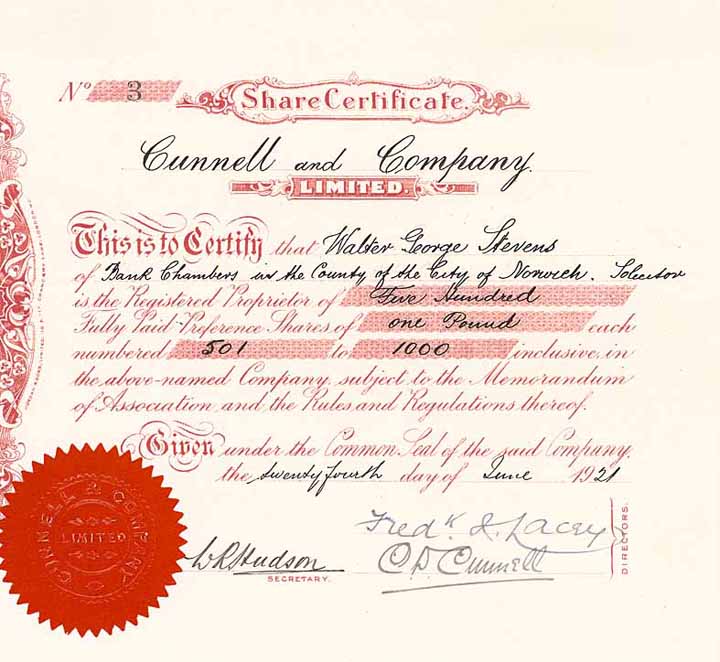 Nº 3
Share Certificate.
Cunnell and Company
LIMITED.
This is to Certify that Walter George Stevens
of Bank Chambers in the County of the City of Norwich. Solicitor
is the Registered Proprietor of Five Hundred
Fully Paid Preference Shares of one Pound each
numbered 501 to 1000 inclusive, in
the above-named Company, subject to the Memorandum
of Association and the Rules and Regulations thereof.
Given under the Common Seal of the said Company,
the twenty fourth day of June 1921
Fredk J. Lacey
W R Hudson
SECRETARY.
C D Cunnell
DIRECTORS.
CUNNELL & COMPANY
LIMITED